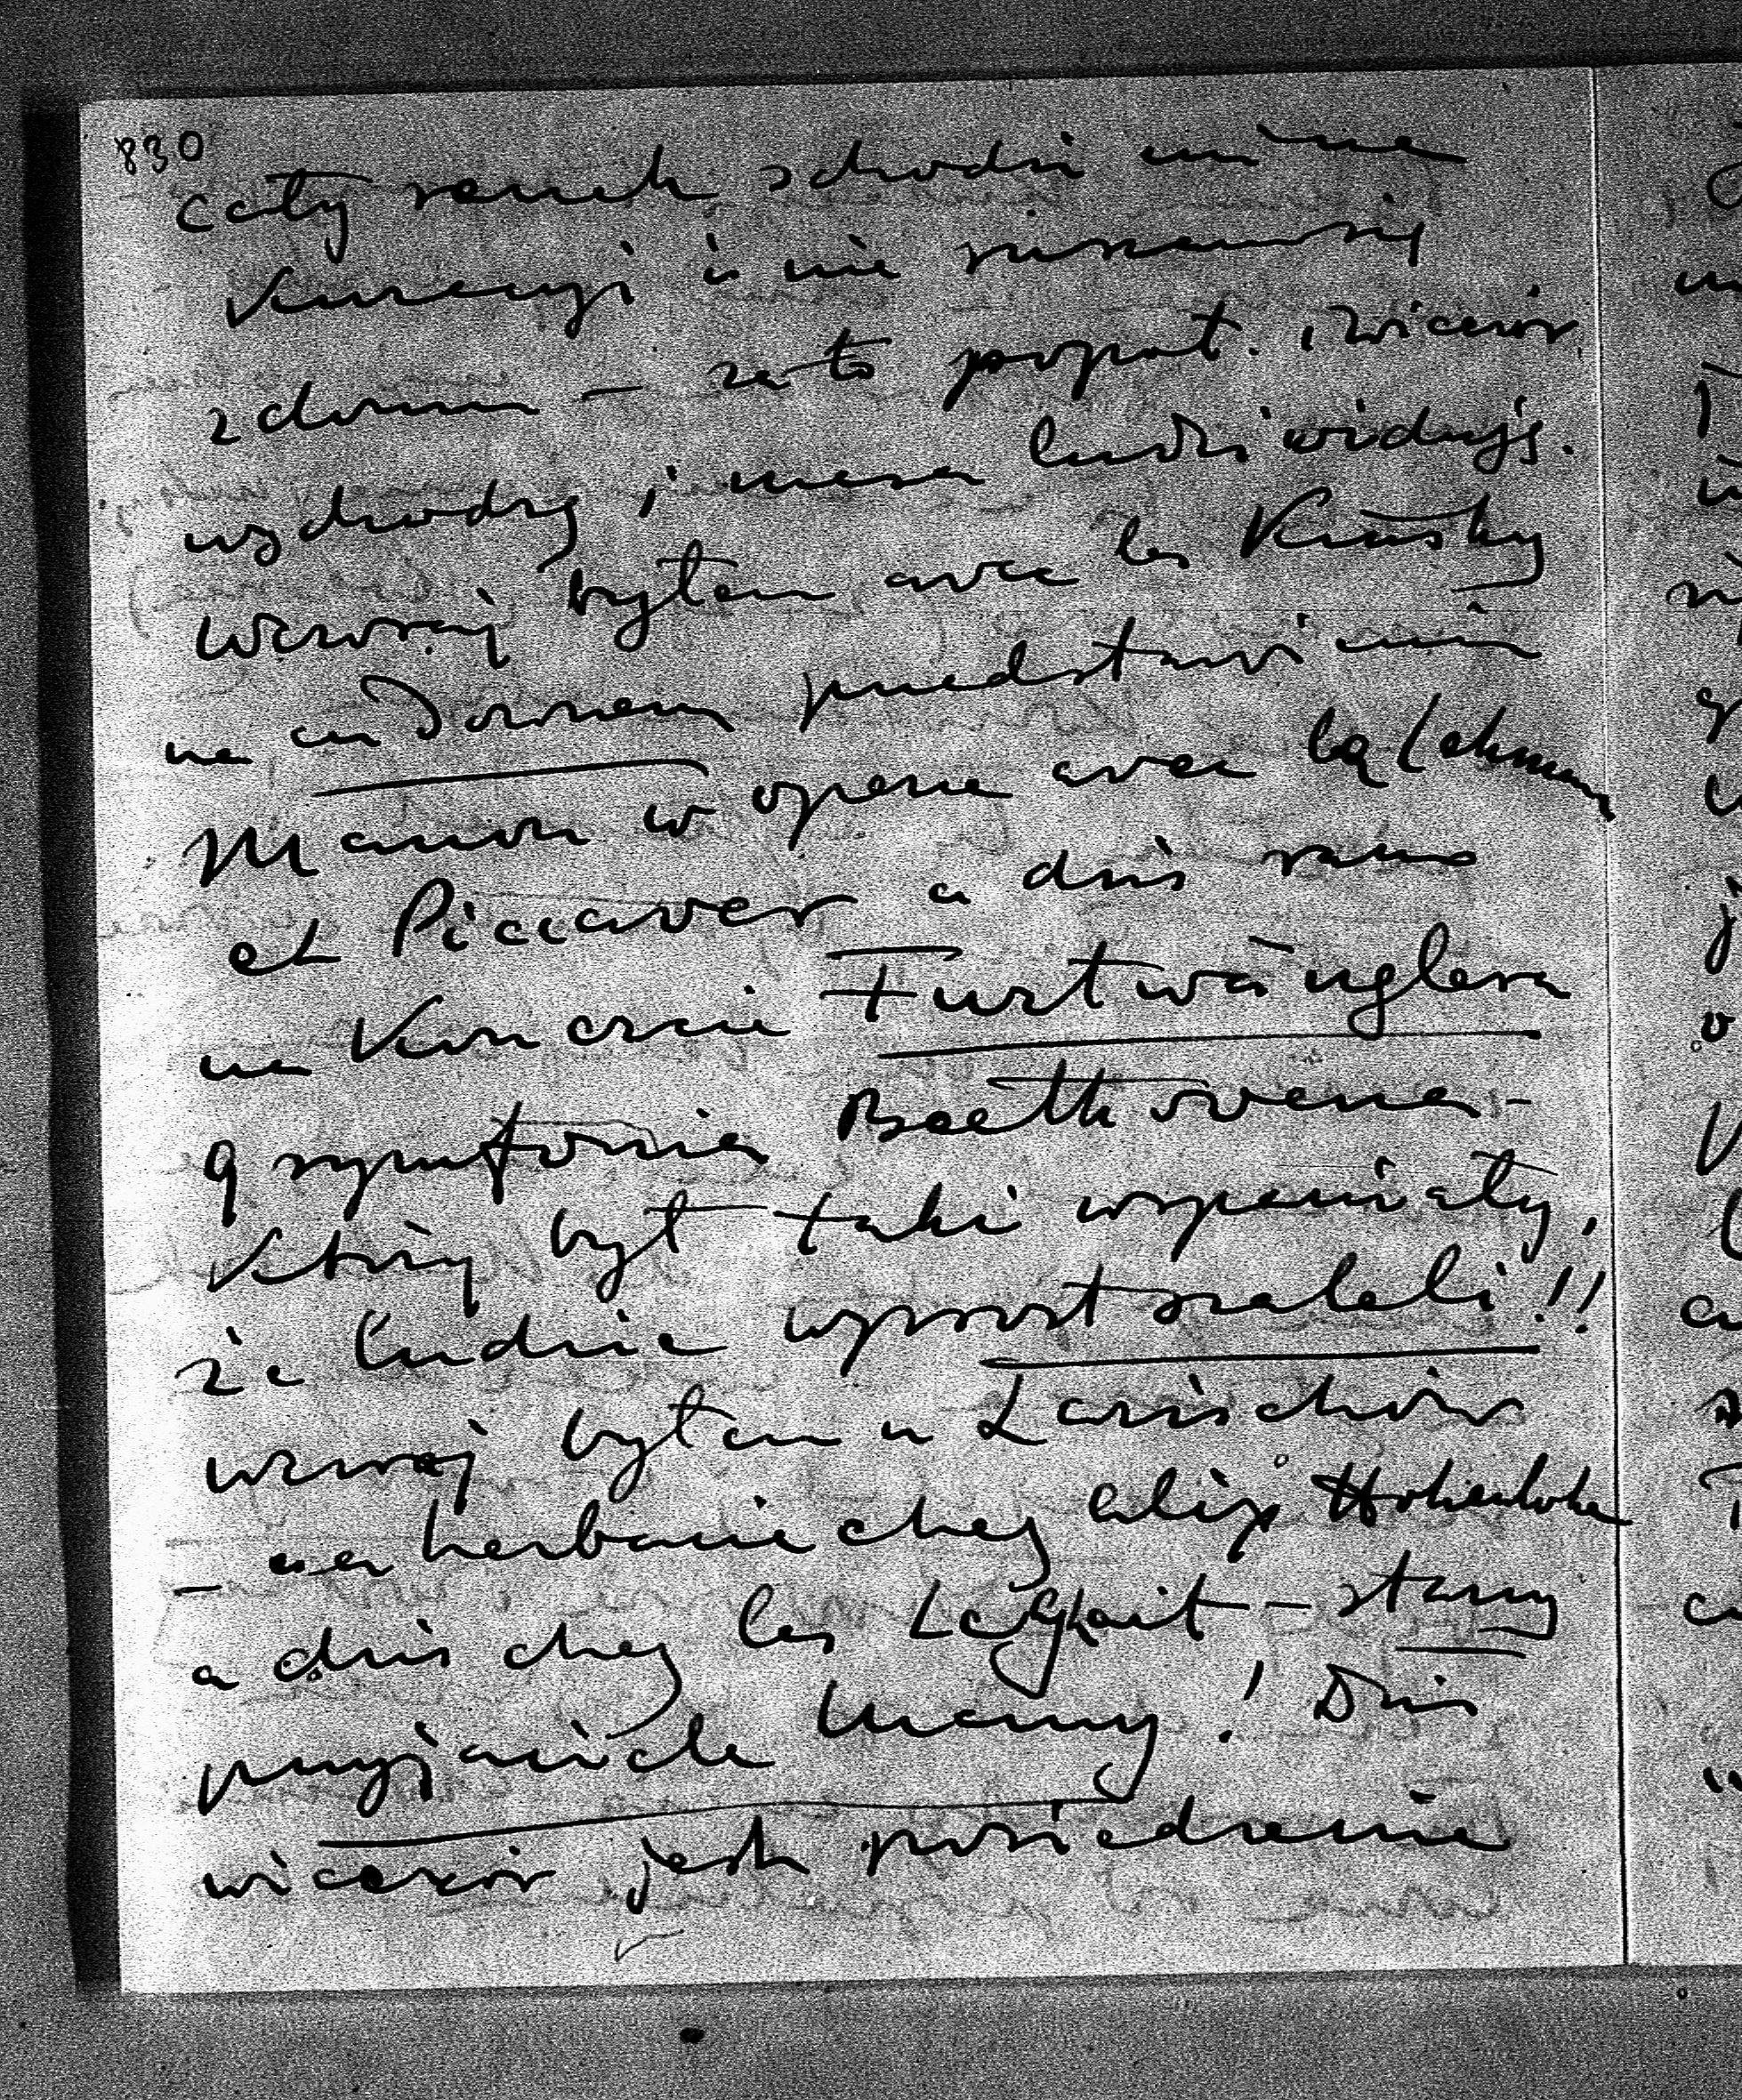 830
cały ranek schodzi mi na
Kuracyi i nie ruszam się
z domu — za to popoł. i wieczór
wychodzę i masa ludzi widuję.
Wczoraj byłem avec les Kinsky
na cudownem przedstawieniu
Manon w operze avec la Lehmann
et Piccaver a dziś rano
na Koncercie Furtwänglera
9 symfonia Beethovena -
Który był taki wspaniały,
że ludzie wprost szaleli!!
wczoraj byłem u Larischów
— na herbacie chez Alix Hohenlohe
a dziś chez les — starzy
przyjaciele Mamy! Dziś
wieczór jest posiedzenie